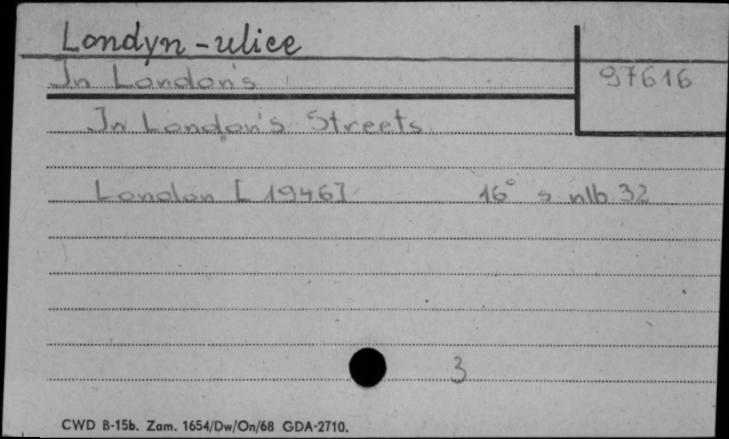 Londyn - ulice
In London's
97616
In London's Streets.
London [1946] 16° s nlb. 32
3
CWD B-15b. Zam. 1654/Dw/On/68 GDA-2710.